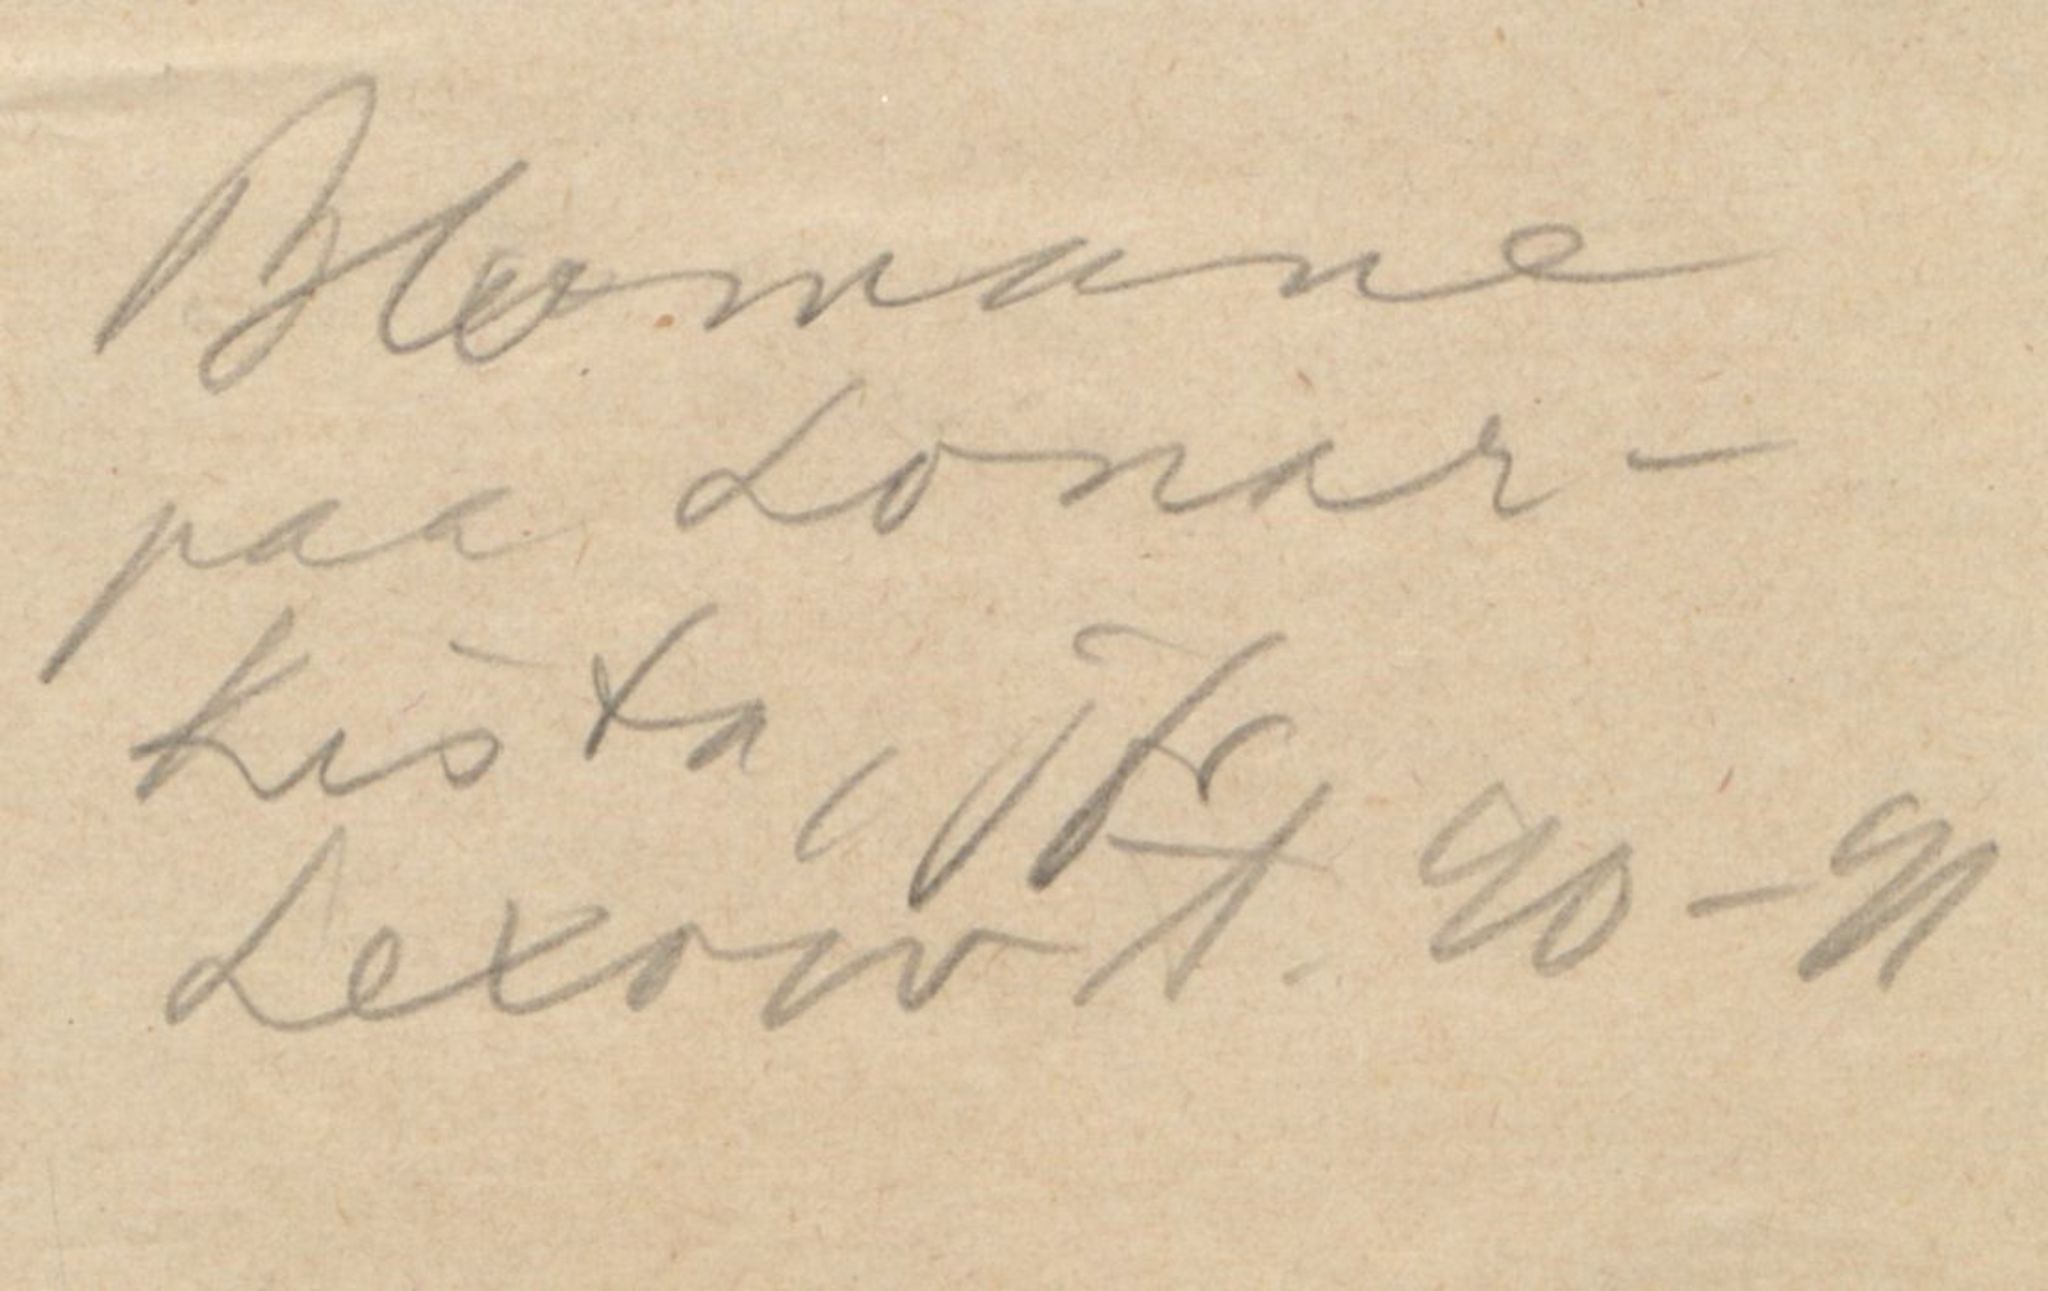 Blomane
paa Lonar-
kista, Jfr
Lexow A. 90-91